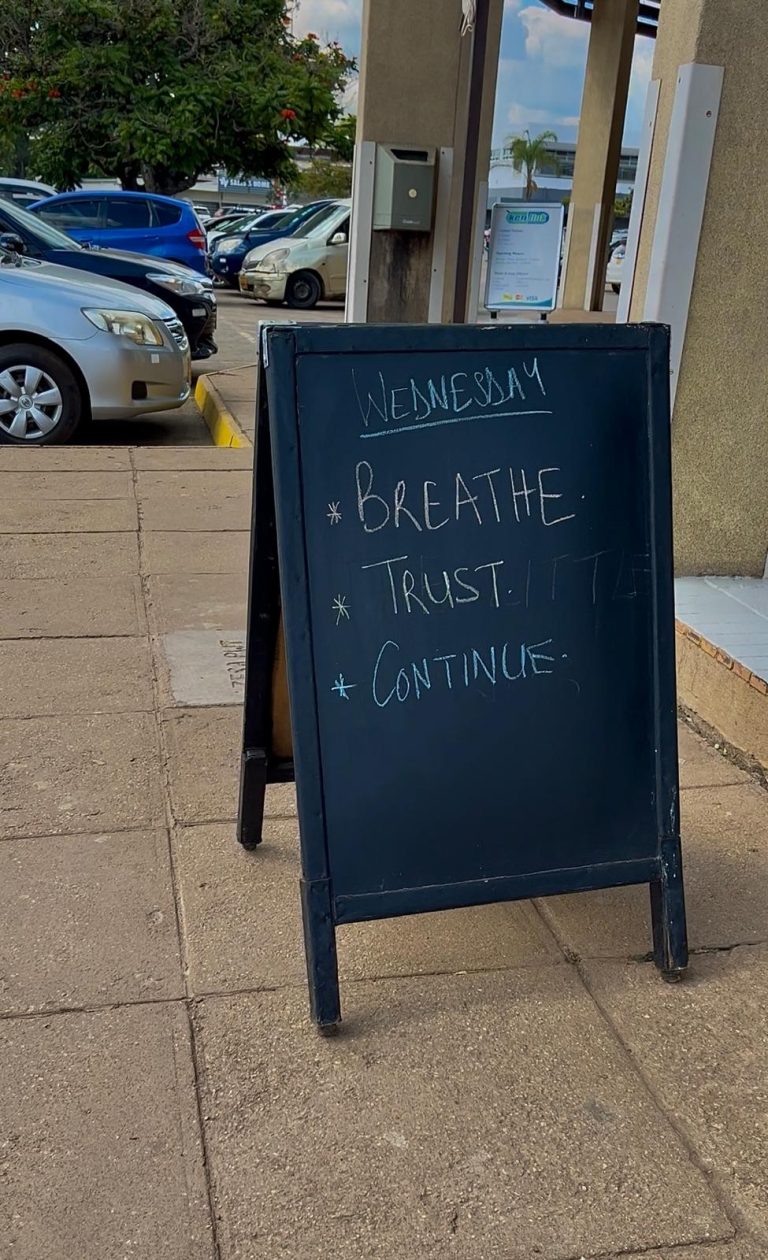 WEDNESDAY
* BREATHE.
* TRUST.
* CONTINUE.
VISA